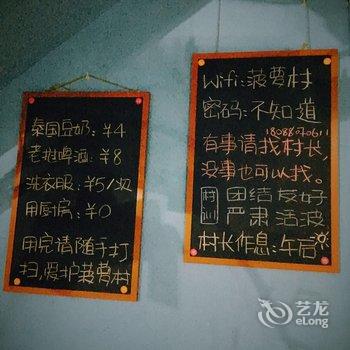 泰国豆奶：¥4
老挝啤酒：¥8
洗衣服：¥5/次
用厨房：¥0
用完请随手打
扫，爱护菠萝村
Wifi：菠萝村
密码：不知道
有事请找村长，
没事也可以找。
村训
团结友好
严肃活波
村长作息：午后
艺龙
eLong